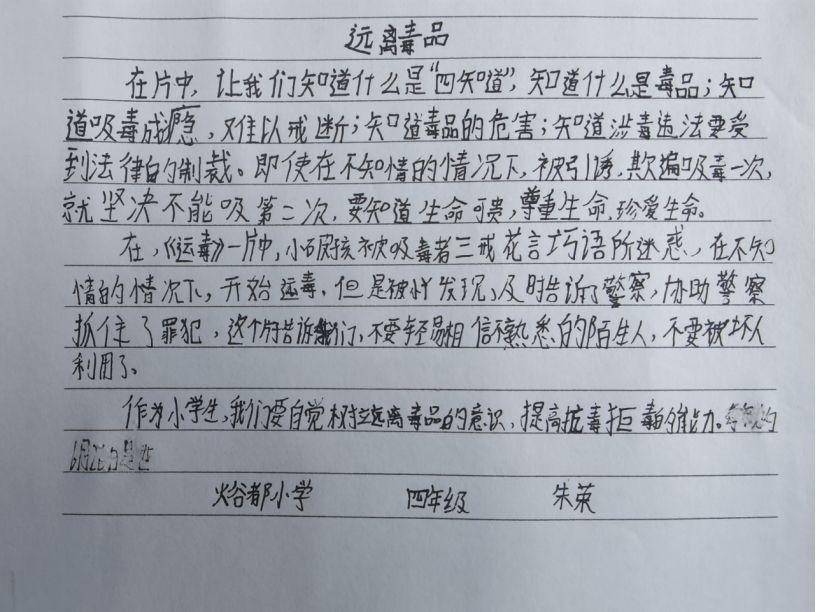 远离毒品
在片中,让我们知道什么是“四知道”,知道什么是毒品;知
道吸毒成瘾,难以戒断;知道毒品的危害;知道涉毒违法要受
到法律的制裁。即使在不知情的情况下,被引诱,欺骗吸毒一次,
就坚决不能吸第二次,要知道生命可贵,尊重生命,珍爱生命。
在,《运毒》一片中,小男孩被吸毒者三戒花言巧语所迷惑、在不知
情的情况下,开始运毒,但是被 发现,及时告诉了警察,协助警察
抓住了罪犯,这个片告诉我们,不要轻易相信不熟悉的陌生人,不要被坏人
利用了。
作为小学生,我们要自觉树立远离毒品的意识,提高抗毒拒毒的能力。
小学 四年级 朱荣